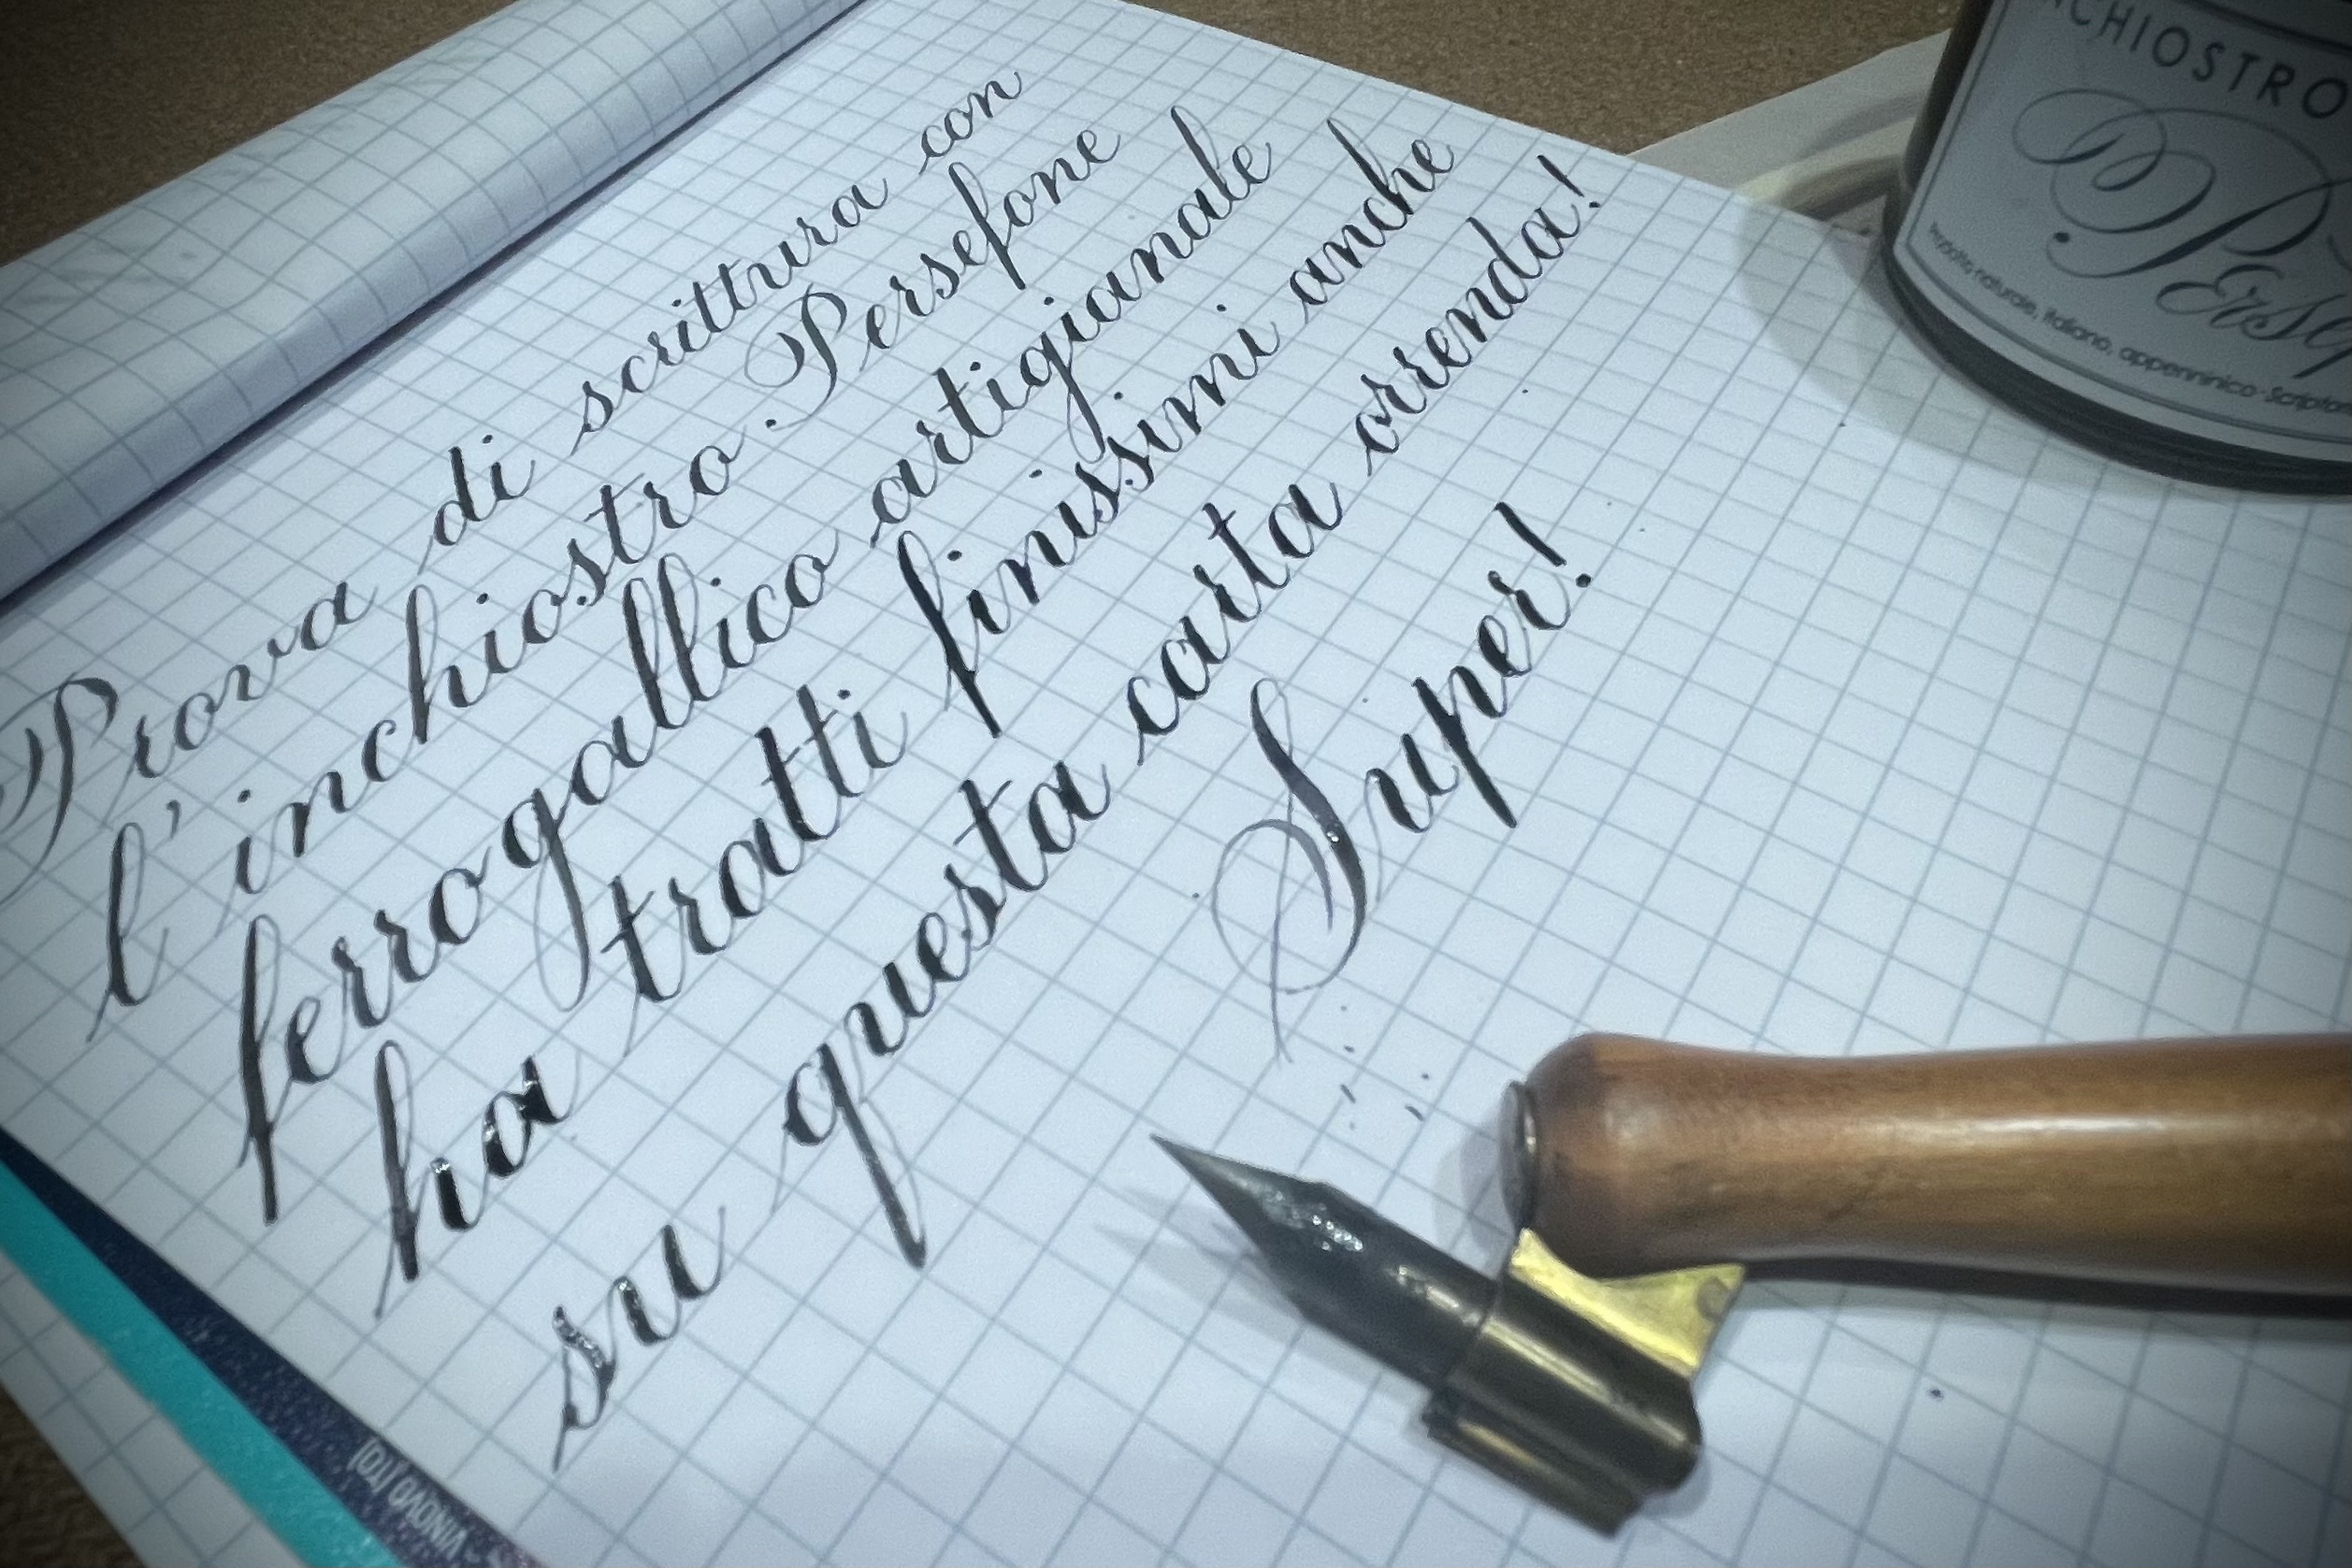 Prova di scrittura con
l'inchiostro Persefone
ferrogallico artigianale
ha tratti finissimi anche
su questa carta orrenda!
Super!
Prodotto naturale, italiano, appenninico